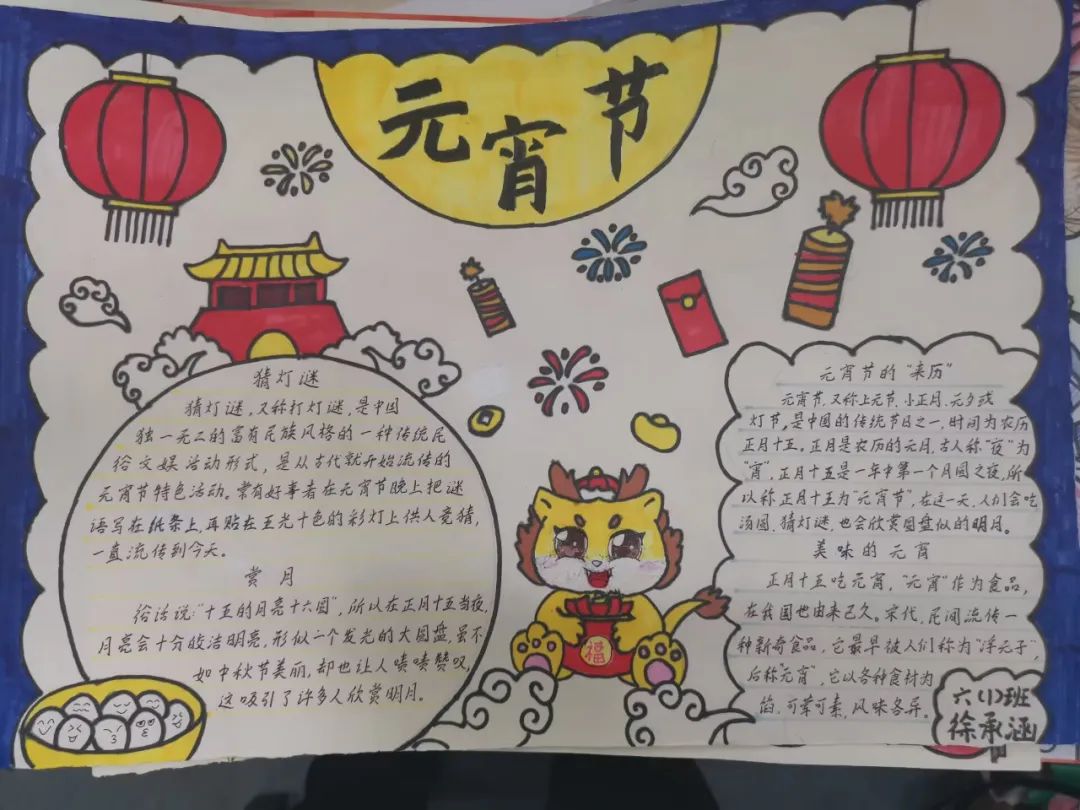 元宵节
猜灯谜
猜灯谜，又称打灯谜，是中国
独一无二的富有民族风格的一种传统民
俗文娱活动形式，是从古代就开始流传的
元宵节特色活动。常有好事者在元宵节晚上把谜
语写在纸条上，再贴在五光十色的彩灯上供人竞猜，
一直流传到今天。
赏月
俗话说："十五的月亮十六圆"，所以在正月十五当夜，
月亮会十分皎洁明亮，形似一个发光的大圆盘，虽不
如中秋节美丽，却也让人啧啧赞叹，
这吸引了许多人欣赏明月。
元宵节的"来历"
元宵节，又称上元节、小正月、元夕或
灯节，是中国的传统节日之一，时间为农历
正月十五。正月是农历的元月，古人称"夜"为
"宵"，正月十五是一年中第一个月圆之夜，所
以称正月十五为"元宵节"，在这一天，人们会吃
汤圆、猜灯谜，也会欣赏圆盘似的明月。
美味的元宵
正月十五吃元宵，"元宵"作为食品，
在我国也由来已久。宋代，民间流传一
种新奇食品，它最早被人们称为"浮元子"，
后称"元宵"，它以各种食材为
馅，可荤可素，风味各异。
福
六（1）班
徐承涵